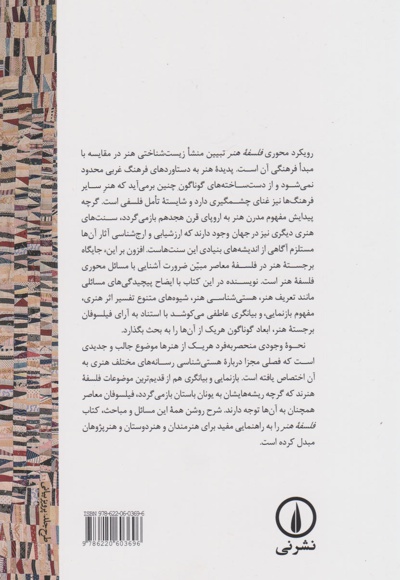 رویکرد محوری فلسفهٔ هنر تبیین منشأ زیست‌شناختی هنر در مقایسه با
مبدأ فرهنگی آن است. پدیدهٔ هنر به دستاوردهای فرهنگ غربی محدود
نمی‌شود و از دست‌ساخته‌های گوناگون چنین برمی‌آید که هنرِ سایر
فرهنگ‌ها نیز غنای چشمگیری دارد و شایستهٔ تأمل فلسفی است. گرچه
پیدایش مفهوم مدرن هنر به اروپای قرن هجدهم بازمی‌گردد، سنت‌های
هنری دیگری نیز در جهان وجود دارند که ارزشیابی و ارج‌شناسی آثار آن‌ها
مستلزم آگاهی از اندیشه‌های بنیادی این سنت‌هاست. افزون بر این، جایگاه
برجستهٔ هنر در فلسفهٔ معاصر مبیّن ضرورت آشنایی با مسائل محوری
فلسفهٔ هنر است. نویسنده در این کتاب با ایضاح پیچیدگی‌های مسائلی
مانند تعریف هنر، هستی‌شناسی هنر، شیوه‌های متنوع تفسیر اثر هنری،
مفهوم بازنمایی، و بیانگری عاطفی می‌کوشد با استناد به آرای فیلسوفان
برجستهٔ هنر، ابعاد گوناگون هریک از آن‌ها را به بحث بگذارد.
نحوهٔ وجودی منحصربه‌فرد هریک از هنرها موضوع جالب و جدیدی
است که فصلی مجزا دربارهٔ هستی‌شناسی رسانه‌های مختلف هنری به
آن اختصاص یافته است. بازنمایی و بیانگری هم از قدیم‌ترین موضوعات فلسفهٔ
هنرند که گرچه ریشه‌هایشان به یونان باستان بازمی‌گردد، فیلسوفان معاصر
همچنان به آن‌ها توجه دارند. شرح روشن همهٔ این مسائل و مباحث، کتاب
فلسفهٔ هنر را به راهنمایی مفید برای هنرمندان و هنردوستان و هنرپژوهان
مبدل کرده است.
طرح جلد: پرویز بیانی
ISBN: 978-622-06-0369-6
9 786220 603696
نشرنی